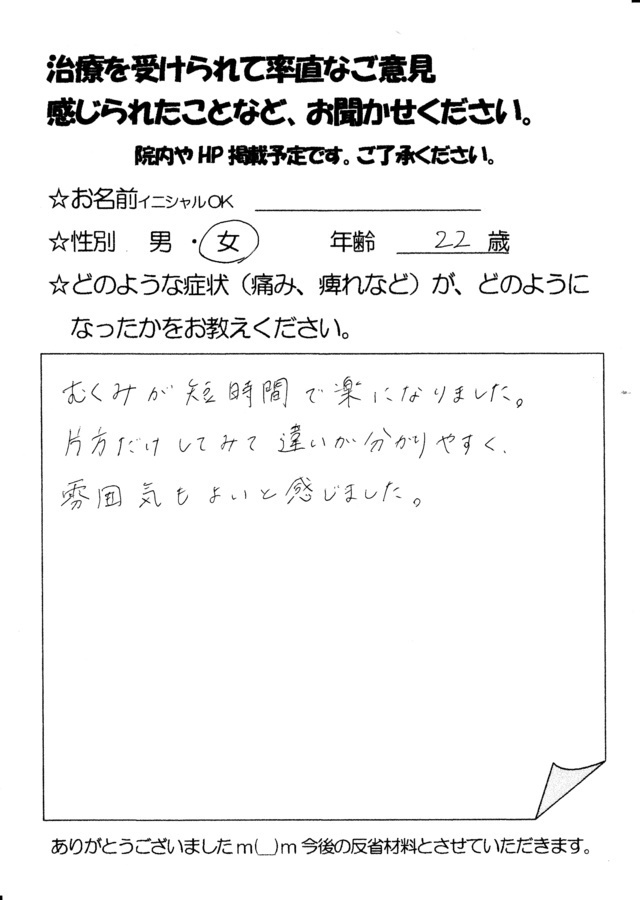 治療を受けられて率直なご意見
感じられたことなど、お聞かせください。
院内や HP 掲載予定です。ご了承ください。
☆お名前イニシャルOK
☆性別 男 ・ 女 年齢 22 歳
☆どのような症状（痛み、痺れなど）が、どのように
なったかをお教えください。
むくみが短時間で楽になりました。
片方だけしてみて違いが分かりやすく、
雰囲気もよいと感じました。
ありがとうございましたm(__)m今後の反省材料とさせていただきます。